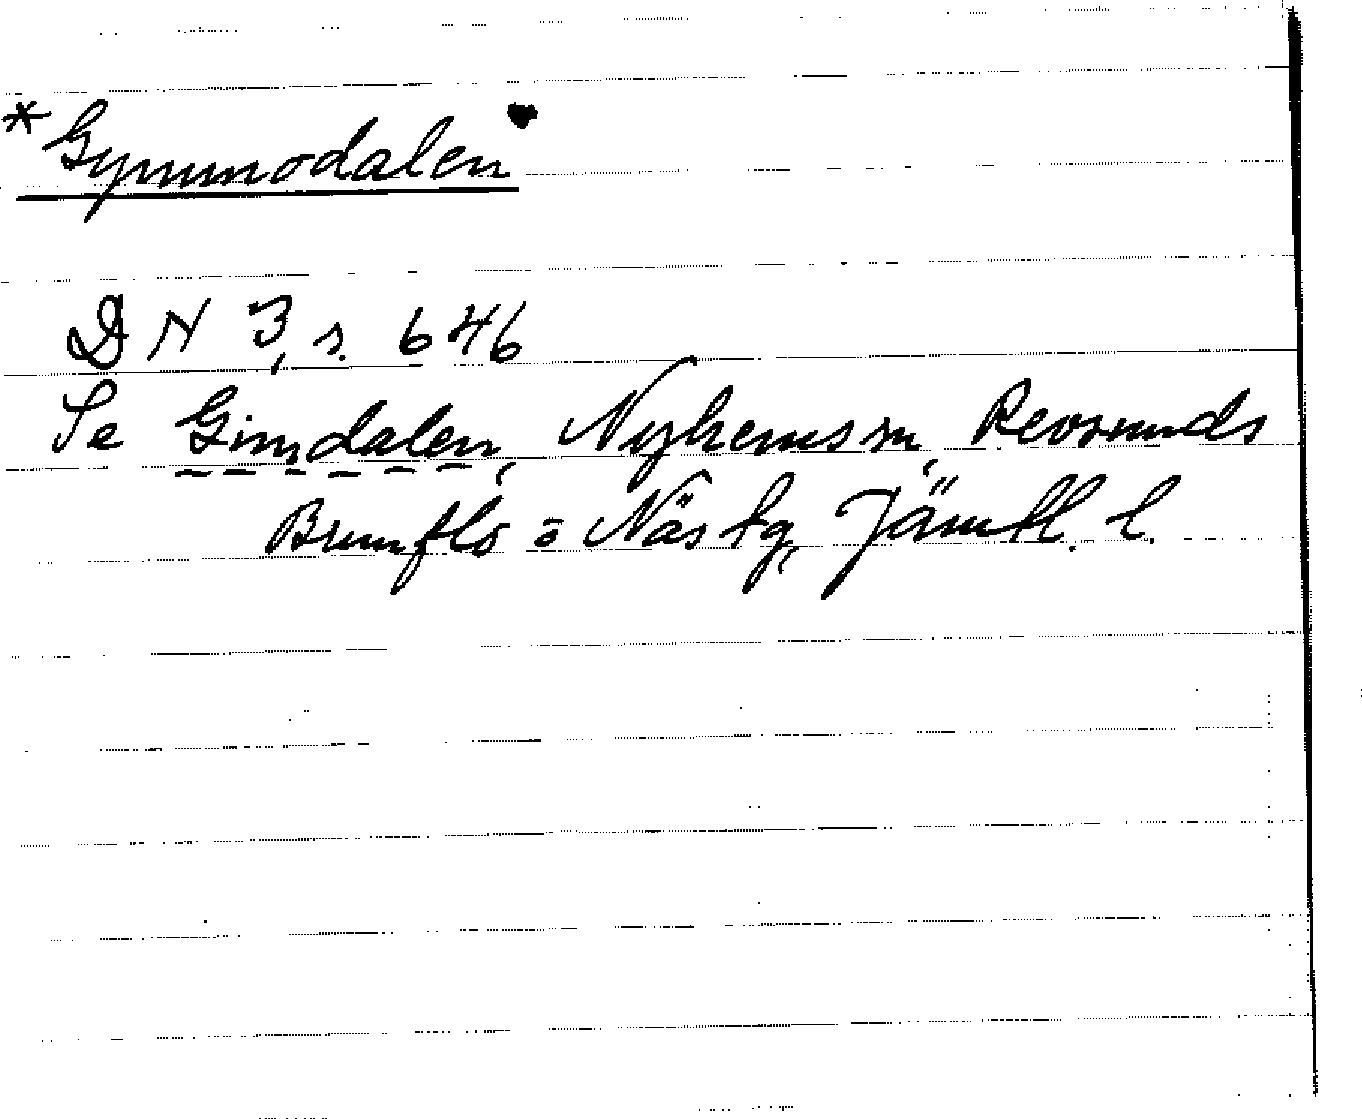 *Gymmodalen
DN 3, s. 646
Se Gimdalen, Nyhems sn, Revsunds
Brunflo o Näs tg, Jämtl. l.